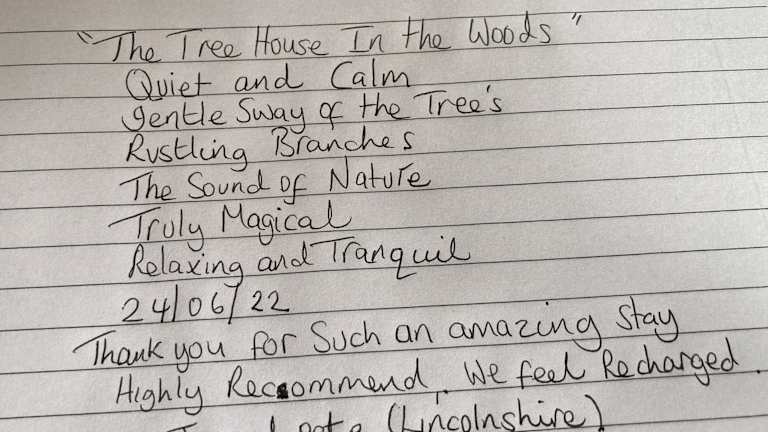 "The Tree House In the Woods"
Quiet and Calm
gentle Sway of the Tree's
Rustling Branches
The Sound of Nature
Truly Magical
Relaxing and Tranquil
24/06/22
Thank you for Such an amazing Stay
Highly Recommend. We feel Recharged.
(Lincolnshire)